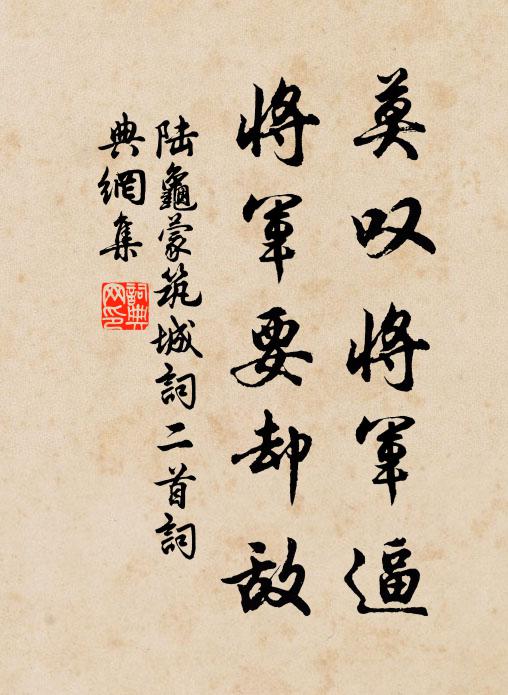 莫叹将军逼
将军要却敌
陆龜蒙筑城詞二首詞
典網集
詞典
网印